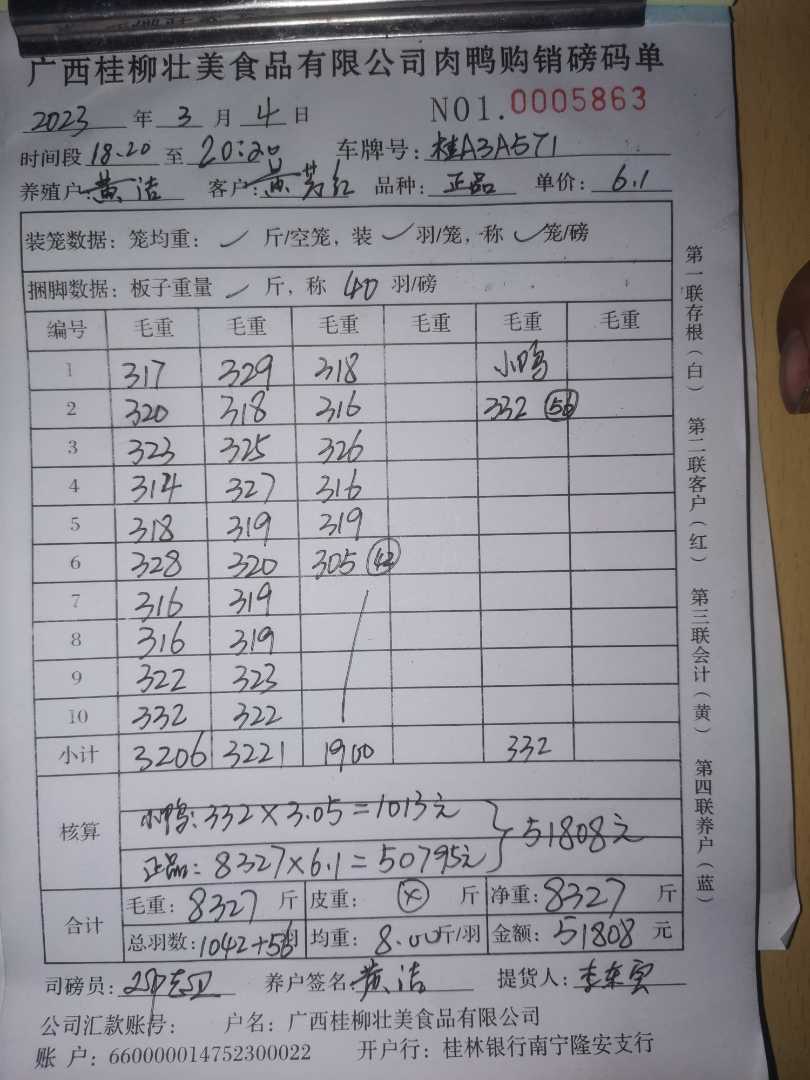 广西桂柳壮美食品有限公司肉鸭购销磅码单
2023 年 3 月 4 日 NO1.0005863
时间段 18.20 至 20:20 车牌号: 桂A3A571
养殖户: 黄洁 客户: 红 品种: 正品 单价: 6.1
装笼数据: 笼均重: ✓ 斤/空笼, 装 ✓ 羽/笼, 称 ✓ 笼/磅
捆脚数据: 板子重量 ✓ 斤, 称 40 羽/磅
编号 毛重 毛重 毛重 毛重 毛重 毛重
1 317 329 318 小鸭
2 320 318 316 332 56
3 323 325 326
4 314 327 316
5 318 319 319
6 328 320 305 43
7 316 319
8 316 319
9 322 323
10 332 322
小计 3206 3221 1900 332
核算 小鸭: 332×3.05=1013元
51808元
正品: 8327×6.1=50795元
合计 毛重: 8327 斤 皮重: × 斤 净重: 8327 斤
总羽数: 1042+56羽 均重: 8.00斤/羽 金额: 51808 元
司磅员: 养户签名: 黄洁 提货人: 李
公司汇款账号: 户名: 广西桂柳壮美食品有限公司
账 户: 660000014752300022 开户行: 桂林银行南宁隆安支行
第一联存根(白) 第二联客户(红) 第三联会计(黄) 第四联养户(蓝)